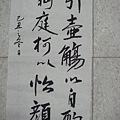 引壺觴以自酌
眄庭柯以怡顏